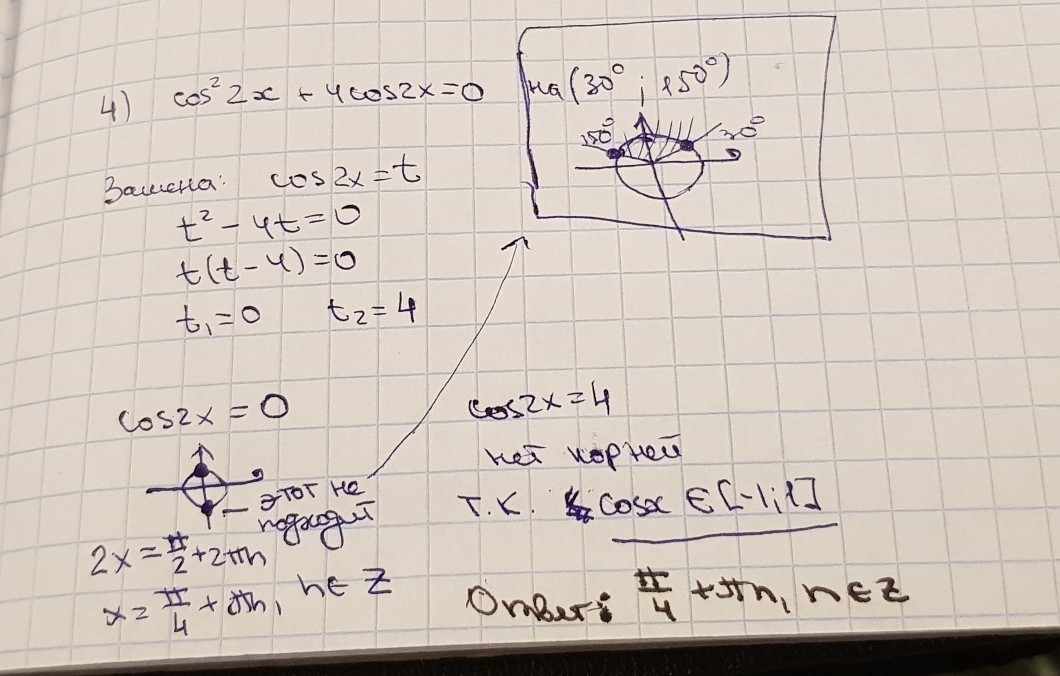 4) cos² 2x + 4cos2x=0
на (30° ; 150°)
150° 30°
Замена: cos2x=t
t² - 4t=0
t(t-4)=0
t₁=0 t₂=4
cos2x=0
этот не
подходит
2x=π/2+2πn
x=π/4+πn, n∈Z
cos2x=4
нет корней
Т.К. cosx ∈[-1;1]
Ответ: π/4+πn, n∈Z